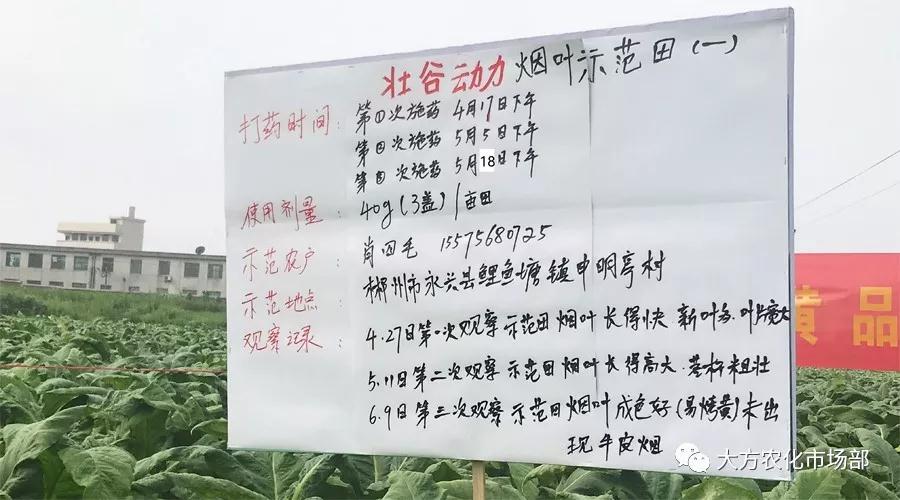 壮谷动力 烟叶示范田(一)
打药时间: 第①次施药 4月17日下午
第②次施药 5月5日下午
第③次施药 5月18日下午
使用剂量: 40g(3盖)/亩田
示范农户: 肖四毛 15575680725
示范地点: 郴州市永兴县鲤鱼塘镇申明亭村
观察记录: 4.27日第一次观察 示范田烟叶长得快 新叶多.叶片宽大
5.11日第二次观察 示范田烟叶长得高大.茎杆粗壮
6.9日第三次观察 示范田烟叶成色好(易烤黄)未出
现牛皮烟
黄品
大方农化市场部